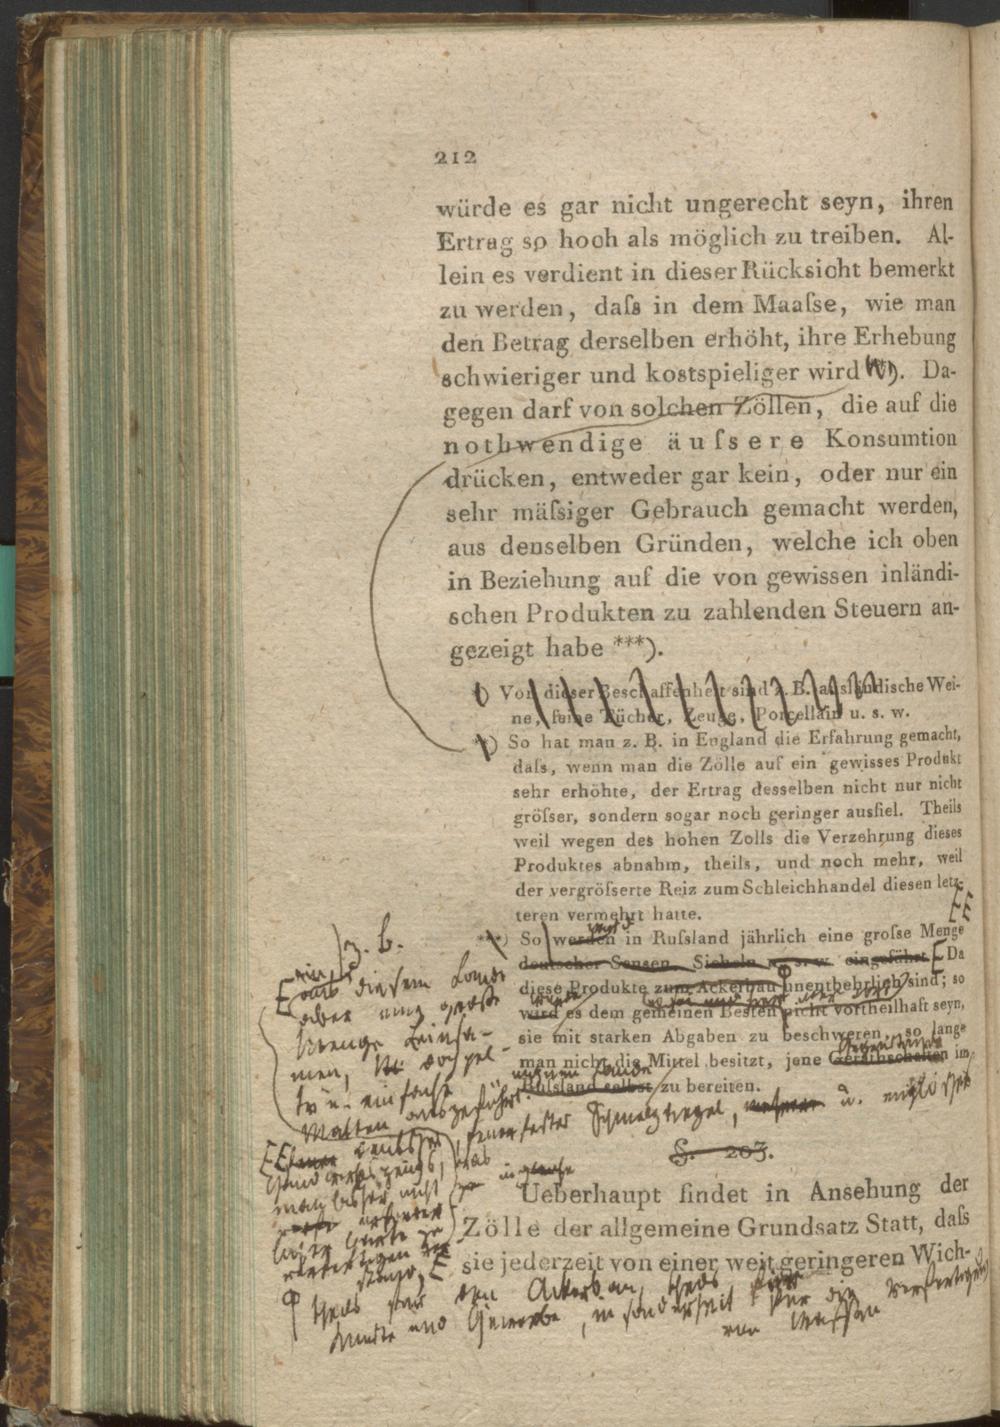 212
würde es gar nicht ungerecht seyn, ihren
Ertrag so hoch als möglich zu treiben. Al-
lein es verdient in dieser Rücksicht bemerkt
zu werden, daſs in dem Maaſse, wie man
den Betrag derselben erhöht, ihre Erhebung
schwieriger und kostspieliger wird ). Da-
gegen darf von solchen Zöllen, die auf die
nothwendige äuſsere Konsumtion
drücken, entweder gar kein, oder nur ein
sehr mäſsiger Gebrauch gemacht werden,
aus denselben Gründen, welche ich oben
in Beziehung auf die von gewissen inländi-
schen Produkten zu zahlenden Steuern an-
gezeigt habe ***).
) Von dieser Beschaffenheit sind z. B. ausländische Wei-
ne, feine Tücher, Zeuge, Porcellain u. s. w.
) So hat man z. B. in England die Erfahrung gemacht,
daſs, wenn man die Zölle auf ein gewisses Produkt
sehr erhöhte, der Ertrag desselben nicht nur nicht
gröſser, sondern sogar noch geringer ausfiel. Theils
weil wegen des hohen Zolls die Verzehrung dieses
Produktes abnahm, theils, und noch mehr, weil
der vergröſserte Reiz zum Schleichhandel diesen letz-
teren vermehrt hatte.
***) So werden in Ruſsland jährlich eine groſse Menge
deutscher Sensen, Sicheln u. s. w. eingeführt. Da
diese Produkte zum Ackerbau unentbehrlich sind; so
wird es dem gemeinen Besten nicht vortheilhaft seyn,
sie mit starken Abgaben zu beschweren, so lange
man nicht die Mittel besitzt, jene Geräthschaften im
Ruſsland selbst zu bereiten.
z. b.
aus diesem Lande
aber eine große
Menge Leinsa-
men,
u. einfache
Matten ausgeführt.
feuerfester Schmelztiegel, u. englischer
§. 203.
Ueberhaupt findet in Ansehung der
Zölle der allgemeine Grundsatz Statt, daſs
sie jederzeit von einer weit geringeren Wich-
theils für den Ackerbau, theils für
und Gewerbe, insonderheit für die Verfertigung
von Waffen